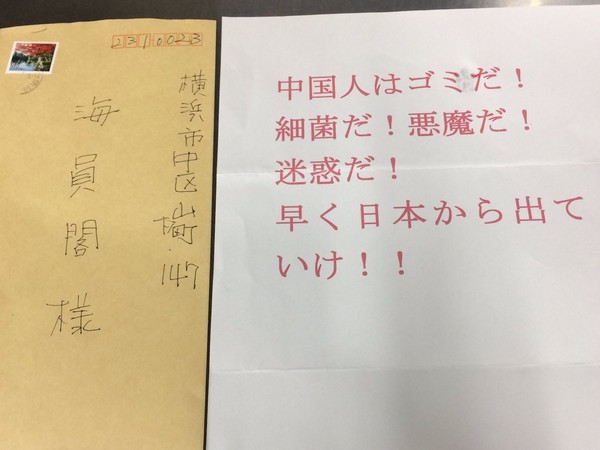 2310023
横浜市中区山下町147
海員閣様
中国人はゴミだ！
細菌だ！悪魔だ！
迷惑だ！
早く日本から出て
いけ！！